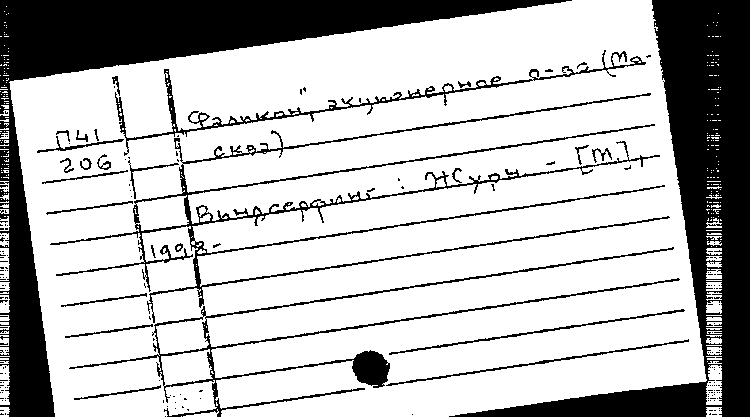 П41
206
"Фэликон", акционерное о-во (Мо-
сква)
Виндсерфинг : Журн. - [М.],
1998-